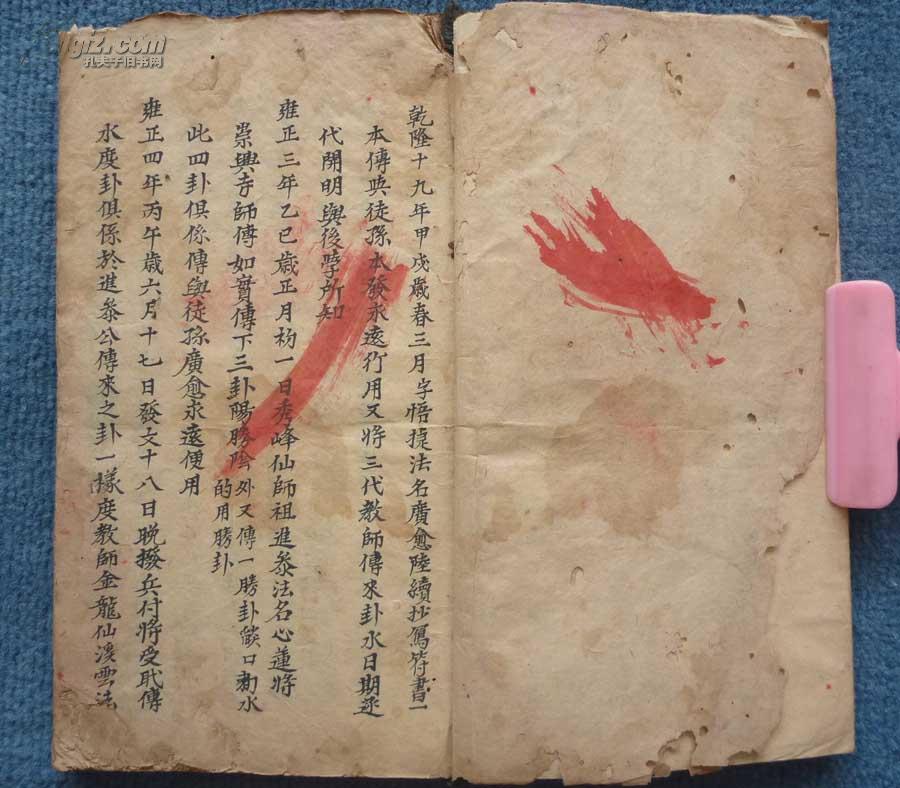 乾隆十九年甲戍歲春三月字悟捷法名廣愈陸續抄寫符書一
本傳與徒孫本發永遠行用又將三代教師傳來卦水日期逐
代開明與後學所知
雍正三年乙巳歲正月初一日秀峰仙師祖進叅法名心蓮將
崇興寺師傳如實傳下三卦陽勝陰外又傳一勝卦燄口勅水
的用勝卦
此四卦俱係傳與徒孫廣愈永遠便用
雍正四年丙午歲六月十七日發文十八日晚撥兵付將受戝傳
水度卦俱係於進叅公傳來之卦一樣度教師金龍仙溪雲法
.com
孔夫子旧书网